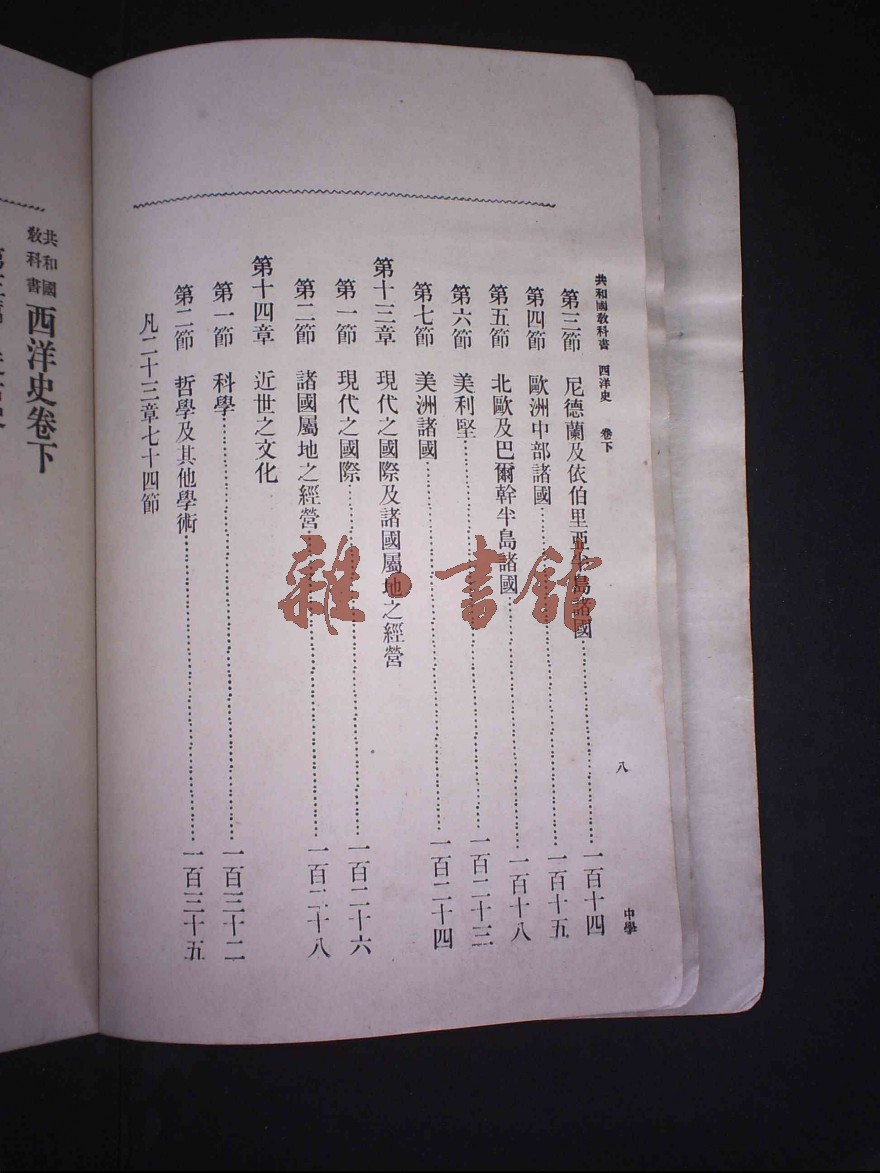 共和國敎科書 西洋史 卷下
八
中學
第三節 尼德蘭及依伯里亞半島諸國 一百十四
第四節 歐洲中部諸國 一百十五
第五節 北歐及巴爾幹半島諸國 一百十八
第六節 美利堅 一百二十三
第七節 美洲諸國 一百二十四
第十三章 現代之國際及諸國屬地之經營
第一節 現代之國際 一百二十六
第二節 諸國屬地之經營 一百二十八
第十四章 近世之文化
第一節 科學 一百三十二
第二節 哲學及其他學術 一百三十五
凡二十三章七十四節
共和國
敎科書
西洋史卷下
雜·書館